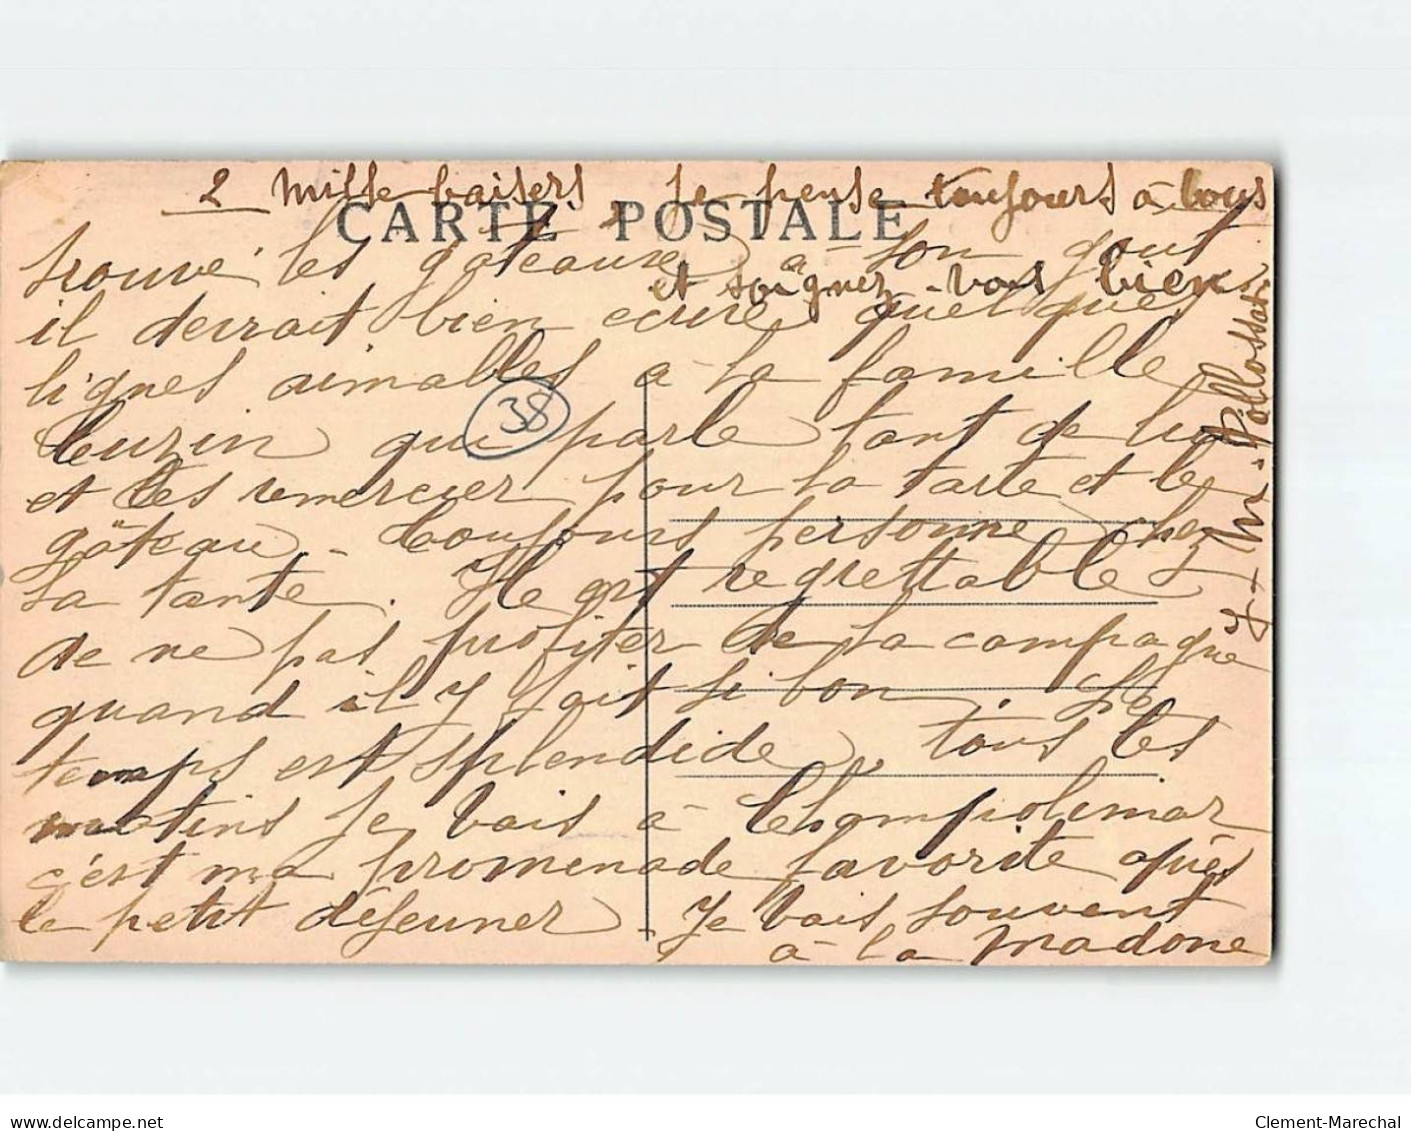 2 Mille baisers, je pense toujours à vous
CARTE POSTALE
et soignez-vous bien
trouvé les gâteaux à son gout
il devrait bien ecrire quelques
lignes aimables à la famille
Cuzin qui parle tant de lui
et les remercier pour la tarte et le
gâteau. Toujours personne chez
la tante. Il est regrettable
de ne pas profiter de la campagne
quand il y fait si bon. Le
temps est splendide, tous les
matins je vais à Champolimar
c'est ma promenade favorite après
le petit déjeuner. Je vais souvent
à la Madone
Y- M. Pollossat
38
delcampe.net
Clement-Marechal